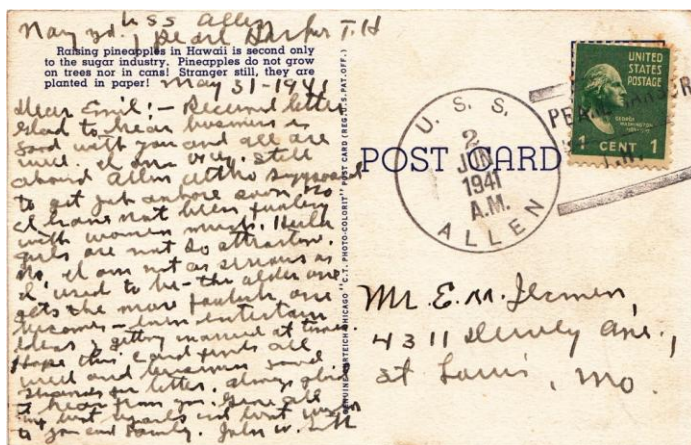 Navy yd. USS Allen
Pearl Harbor T.H
Raising pineapples in Hawaii is second only
to the sugar industry. Pineapples do not grow
on trees nor in cans! Stranger still, they are
planted in paper!
May 31-1941
Dear Emil:- Received letter
glad to hear business is
good with you and all are
well. I am Okey. Still
aboard Allen altho supposed
to get job ashore soon. No
I have not been
with women much.
girls are not so attractive.
No, I am not as serious as
I used to be - the older one
gets the more foolish one
becomes - even entertain
ideas of getting married at times.
Hope this card finds all
well and business good
letter. Always glad
to hear from you. Give all
my best regards and best wishes
to you and family. John W.
GENUINE CURTEICH-CHICAGO "C.T. PHOTO-COLORIT" POST CARD (REG. U.S. PAT. OFF.)
POST CARD
U. S. S.
2
JUN
1941
A.M.
ALLEN
PEARL HARBOR
T.H.
UNITED
STATES
POSTAGE
GEORGE
WASHINGTON
1 CENT 1
Mr. E. M.
4311 Dewey Ave.,
St Louis, Mo.